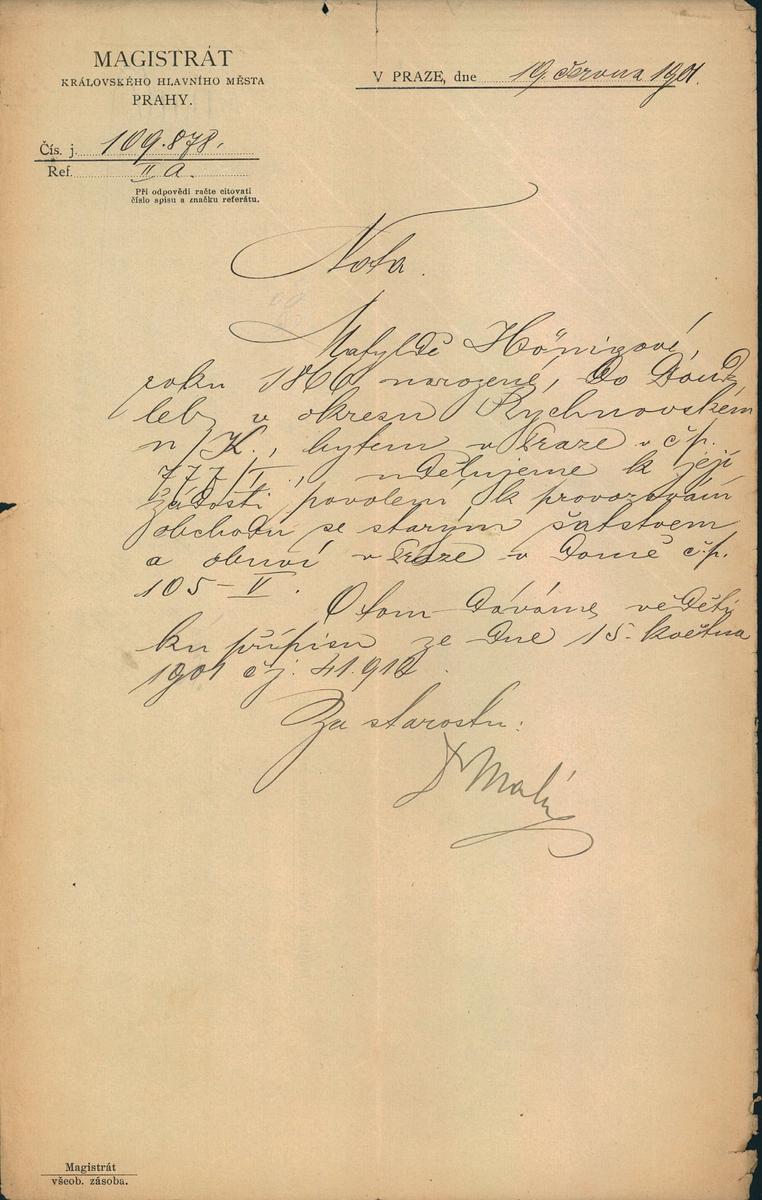 MAGISTRÁT
KRÁLOVSKÉHO HLAVNÍHO MĚSTA
PRAHY.
V PRAZE, dne 19. června 1901.
Čís. j. 109.878.
Ref. II A.
Při odpovědi račte citovati
číslo spisu a značku referátu.
Nota.
Matyldě Hönigové,
roku 1860 narozené, do Doud-
leb v okresu Rychnovském
n/K., bytem v Praze v čp.
777/I., udělujeme k její
žádosti povolení k provozování
obchodu se starým šatstvem
a obuví v Praze v domě čp.
105-V.
O tom dáváme věděti
ku přípisu ze dne 15. května
1901 čj. 41.912.
Za starostu:
Dr Malý
Magistrát
všeob. zásoba.